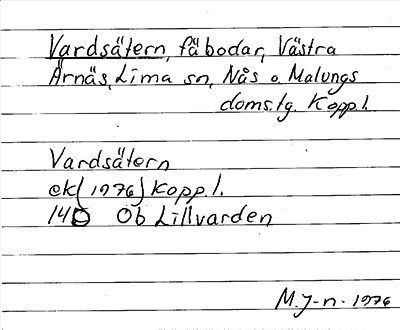 Vardsätern, fäbodar, Västra
Ärnäs, Lima sn, Nås o. Malungs
doms.tg. Kopp.l.
Vardsätern
ek (1976) Kopp.l.
14D Ob Lillvarden
M.J-n. 1976